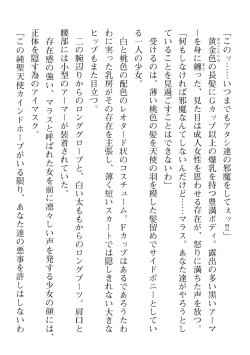 「このッ……いつまでもアタシ達の邪魔をしてェッ!!」
黄金色の長髪にGカップ以上の爆乳を持つ豊満ボディ。露出の多い黒いアーマ
ーを身に纏った、見た目は成人女性を思わせる存在が、怒りに満ちた声を放つ。
「何もしなければ邪魔なんてしないんだけど……マラス、あなた達がやろうとし
ていることを見過ごすことはできないわ」
受けるのは、薄い桃色の髪を天使の羽を模した髪留めでサイドポニーとしてい
る一人の少女。
白と桃色の配色のレオタード状のコスチューム、Fカップはあるであろうたわ
わに実った乳房がその存在を主張し、薄く短いスカートでは隠しきれない大きな
ヒップもまた目立つ。
二の腕辺りからのロンググローブと、白い太ももからのロングブーツ。肩口と
腰部には小型のアーマーが装着されていた。
存在感の強い、マラスと呼ばれた女を前に凛々しい声を発する少女の顔には、
正体を隠す為のアイマスク。
「この純聖天使カインドホープがいる限り、あなた達の悪事を許しはしないわ